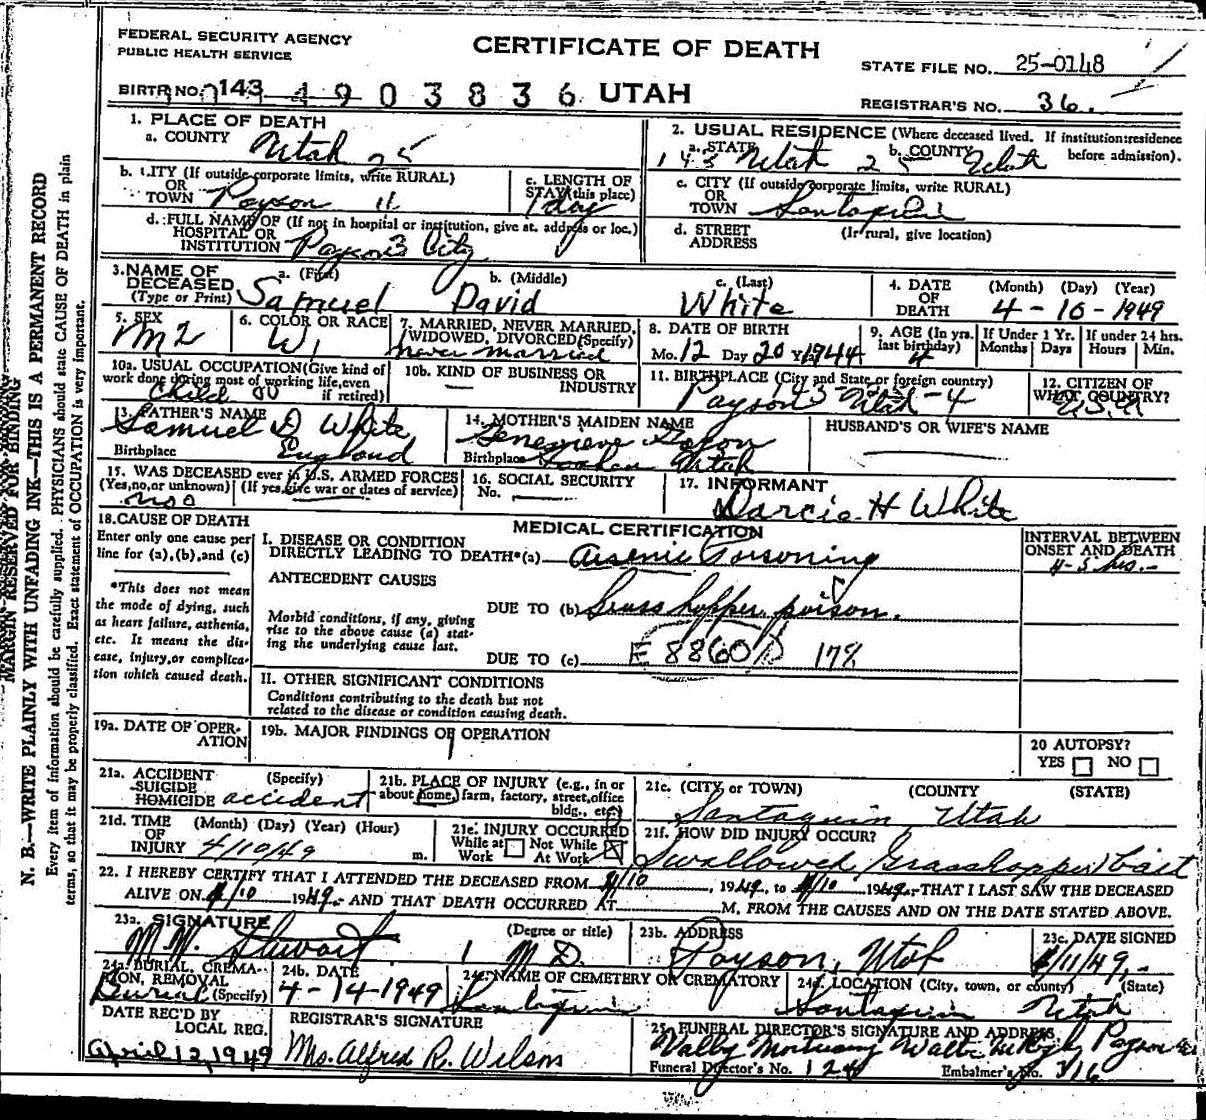 FEDERAL SECURITY AGENCY
PUBLIC HEALTH SERVICE
CERTIFICATE OF DEATH
STATE FILE NO. 25-0148
BIRTH NO. 143 4903836 UTAH
REGISTRAR'S NO. 36.
MARGIN RESERVED FOR BINDING
N. B.—WRITE PLAINLY WITH UNFADING INK—THIS IS A PERMANENT RECORD
Every item of information should be carefully supplied. PHYSICIANS should state CAUSE OF DEATH in plain
terms, so that it may be properly classified. Exact statement of OCCUPATION is very important.
1. PLACE OF DEATH
a. COUNTY Utah 25
b. CITY (If outside corporate limits, write RURAL)
OR
TOWN Payson 11
c. LENGTH OF
STAY (this place)
1 day
d. FULL NAME OF (If not in hospital or institution, give st. address or loc.)
HOSPITAL OR
INSTITUTION Payson City
2. USUAL RESIDENCE (Where deceased lived. If institution: residence
before admission).
a. STATE 143 Utah 25 b. COUNTY Utah
c. CITY (If outside corporate limits, write RURAL)
OR
TOWN Santaquin
d. STREET (If rural, give location)
ADDRESS
3. NAME OF
DECEASED
(Type or Print)
a. (First) Samuel
b. (Middle) David
c. (Last) White
4. DATE
OF
DEATH
(Month) (Day) (Year)
4 - 10 - 1949
5. SEX
M 2
6. COLOR OR RACE
W 1
7. MARRIED, NEVER MARRIED,
WIDOWED, DIVORCED (Specify)
never married
8. DATE OF BIRTH
Mo. 12 Day 20 Yr. 1944
9. AGE (In yrs.
last birthday)
4
If Under 1 Yr.
Months Days
If under 24 hrs.
Hours Min.
10a. USUAL OCCUPATION (Give kind of
work done during most of working life, even
if retired)
Child
10b. KIND OF BUSINESS OR
INDUSTRY
11. BIRTHPLACE (City and State or foreign country)
Payson Utah - 4
12. CITIZEN OF
WHAT COUNTRY?
U.S.A.
13. FATHER'S NAME
Samuel D White
Birthplace England
14. MOTHER'S MAIDEN NAME
Genevieve
Birthplace Utah
HUSBAND'S OR WIFE'S NAME
15. WAS DECEASED ever in U.S. ARMED FORCES
(Yes, no, or unknown) (If yes, give war or dates of service)
16. SOCIAL SECURITY
No.
17. INFORMANT
H White
18. CAUSE OF DEATH
Enter only one cause per
line for (a), (b), and (c)
*This does not mean
the mode of dying, such
as heart failure, asthenia,
etc. It means the dis-
ease, injury, or complica-
tion which caused death.
MEDICAL CERTIFICATION
I. DISEASE OR CONDITION
DIRECTLY LEADING TO DEATH*(a) Arsenic Poisoning
INTERVAL BETWEEN
ONSET AND DEATH
4-5 hrs.-
ANTECEDENT CAUSES
Morbid conditions, if any, giving
rise to the above cause (a) stat-
ing the underlying cause last.
DUE TO (b) Grasshopper poison.
DUE TO (c) E 8860 178
II. OTHER SIGNIFICANT CONDITIONS
Conditions contributing to the death but not
related to the disease or condition causing death.
19a. DATE OF OPER-
ATION
19b. MAJOR FINDINGS OF OPERATION
20 AUTOPSY?
YES NO
21a. ACCIDENT (Specify)
SUICIDE
HOMICIDE accident
21b. PLACE OF INJURY (e.g., in or
about home, farm, factory, street, office
bldg., etc.)
21c. (CITY or TOWN) (COUNTY (STATE)
Santaquin Utah
21d. TIME (Month) (Day) (Year) (Hour)
OF
INJURY 4/10/49 m.
21e. INJURY OCCURRED
While at Not While
Work At Work
21f. HOW DID INJURY OCCUR?
Swallowed (Grasshopper) bait
22. I HEREBY CERTIFY THAT I ATTENDED THE DECEASED FROM 4/10, 1949, to 4/10 1949.- THAT I LAST SAW THE DECEASED
ALIVE ON 4/10 1949.- AND THAT DEATH OCCURRED AT M, FROM THE CAUSES AND ON THE DATE STATED ABOVE.
23a. SIGNATURE (Degree or title)
M.W. Stewart M D.
23b. ADDRESS
Payson, Utah
23c. DATE SIGNED
4/11/49,-
24a. BURIAL, CREMA-
TION, REMOVAL
(Specify)
Burial
24b. DATE
4-14-1949
24c. NAME OF CEMETERY OR CREMATORY
Santaquin
24d. LOCATION (City, town, or county) (State)
Santaquin Utah
DATE REC'D BY
LOCAL REG.
April 12, 1949
REGISTRAR'S SIGNATURE
Mrs. Alfred R. Wilson
25. FUNERAL DIRECTOR'S SIGNATURE AND ADDRESS
Mortuary Payson
Funeral Director's No. 124 Embalmer's No. 316